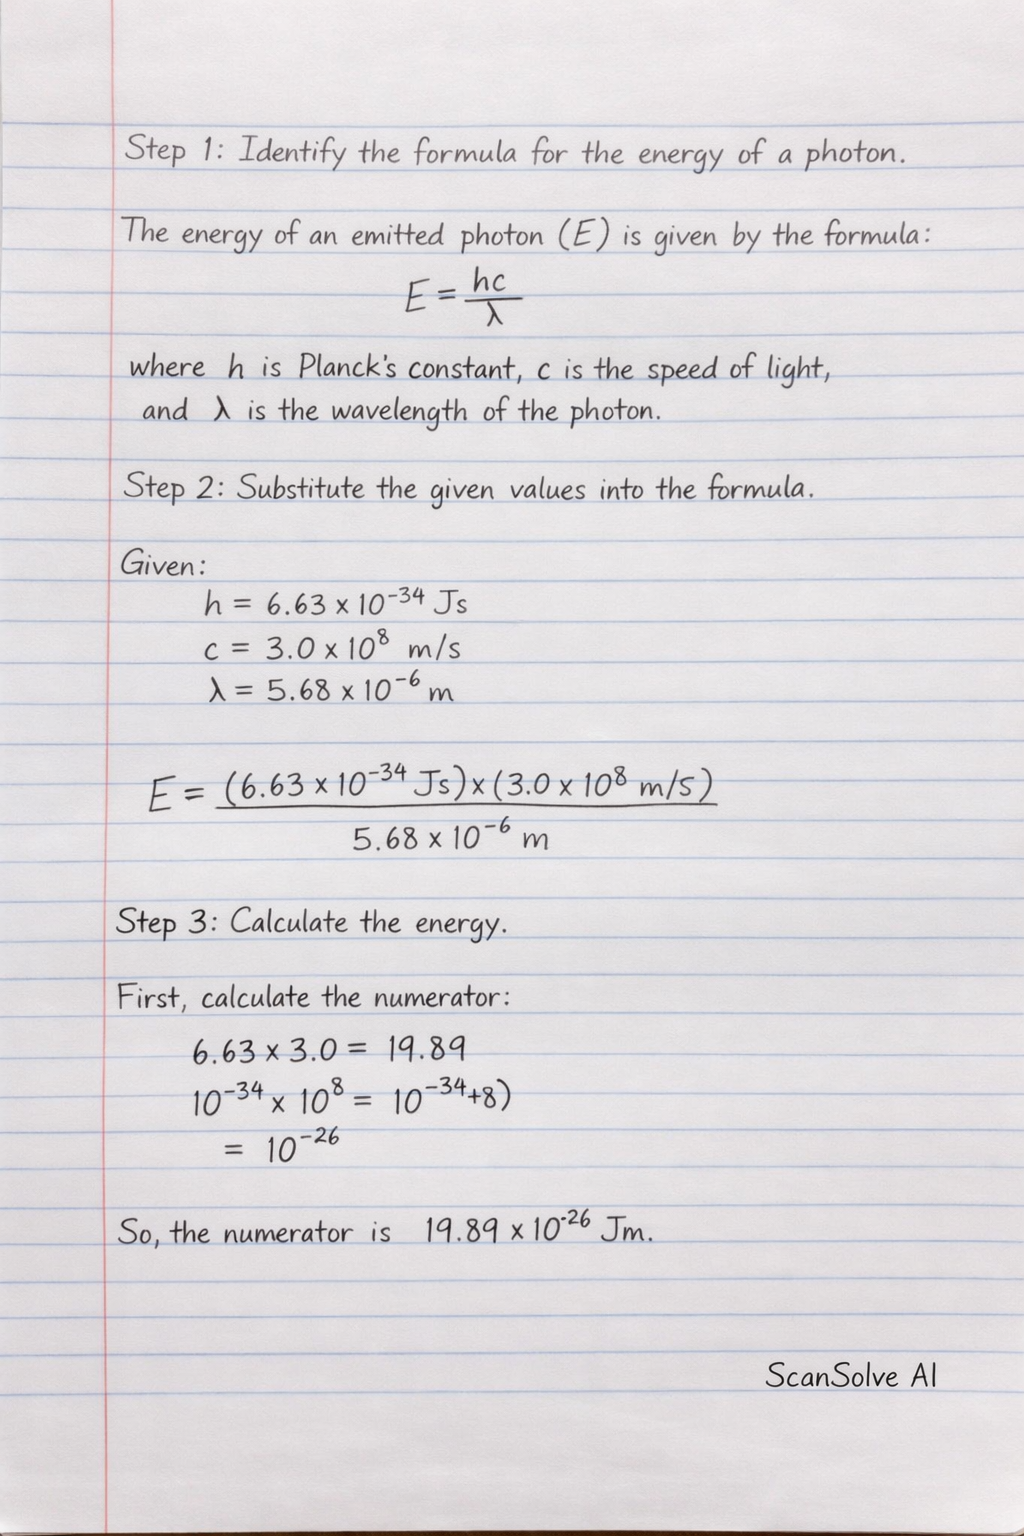 Step 1: Identify the formula for the energy of a photon.
The energy of an emitted photon (E) is given by the formula:
E = hc/λ
where h is Planck's constant, c is the speed of light,
and λ is the wavelength of the photon.
Step 2: Substitute the given values into the formula.
Given:
h = 6.63 x 10⁻³⁴ Js
c = 3.0 x 10⁸ m/s
λ = 5.68 x 10⁻⁶ m
E = (6.63 x 10⁻³⁴ Js) x (3.0 x 10⁸ m/s)
5.68 x 10⁻⁶ m
Step 3: Calculate the energy.
First, calculate the numerator:
6.63 x 3.0 = 19.89
10⁻³⁴ x 10⁸ = 10⁻³⁴⁺⁸⁾
= 10⁻²⁶
So, the numerator is 19.89 x 10⁻²⁶ Jm.
ScanSolve AI